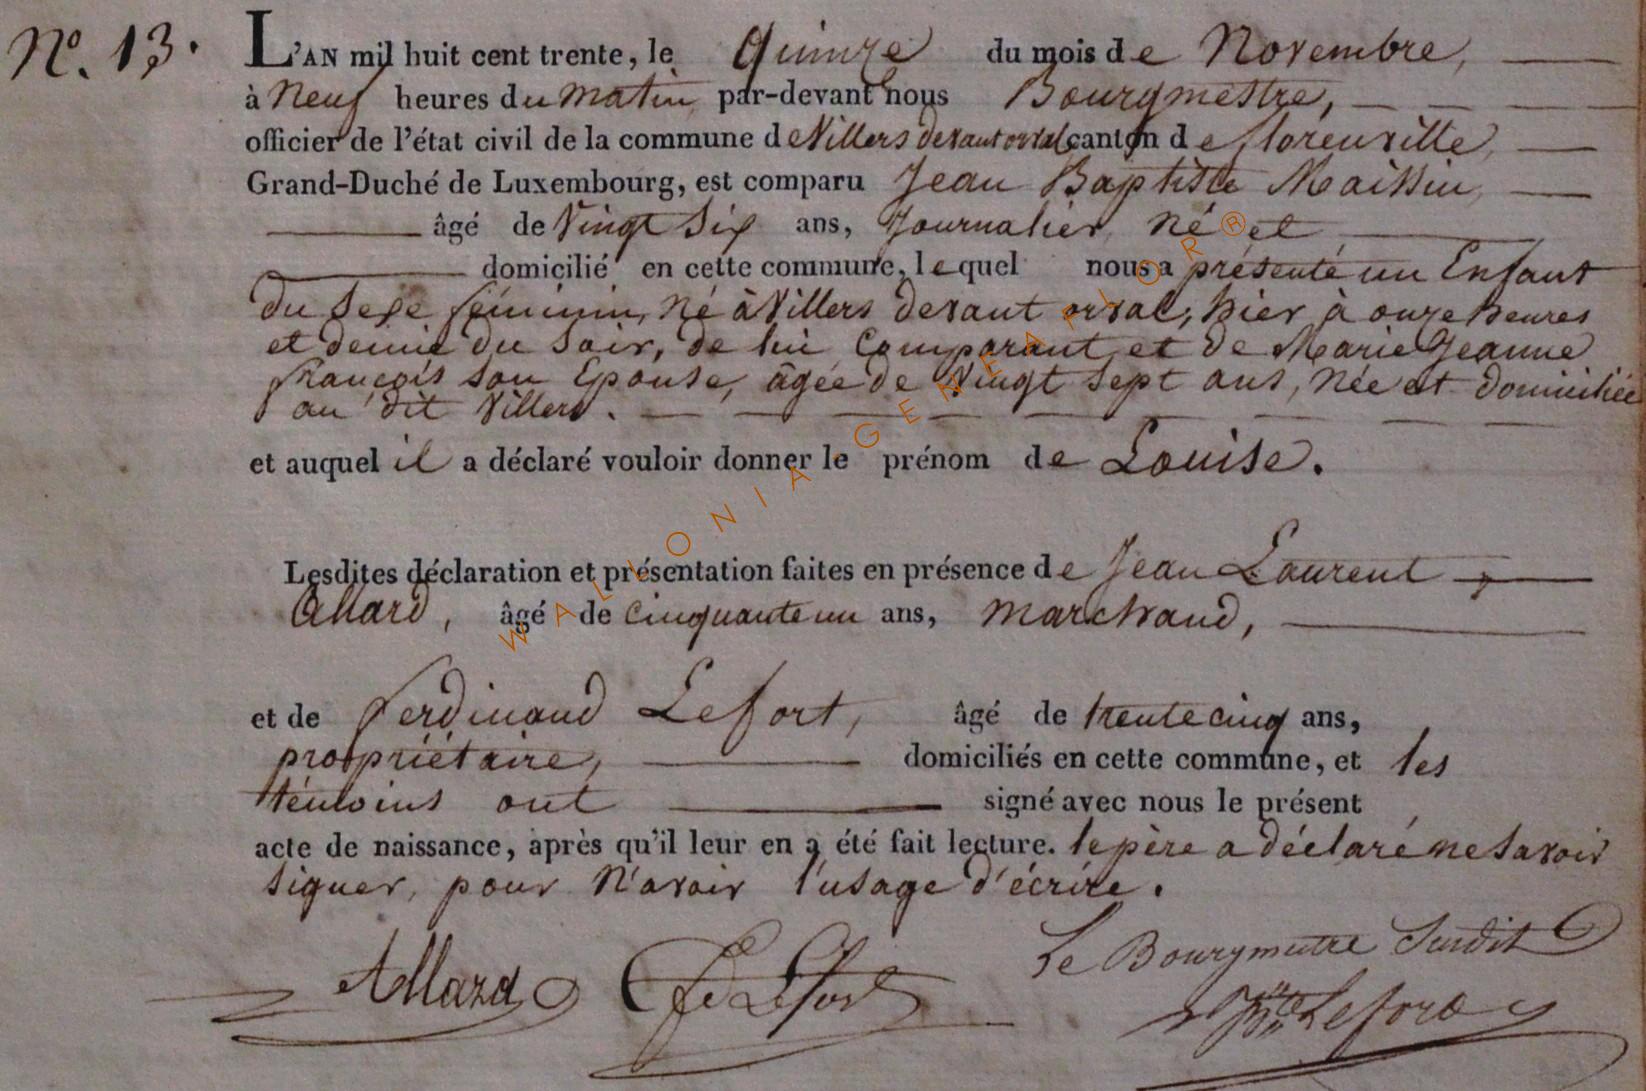 N.º 13.
L'AN mil huit cent trente, le quinze du mois de Novembre,
à Neuf heures du matin, par-devant nous Bourgmestre,
officier de l'état civil de la commune de Villers devant orval canton de florenville,
Grand-Duché de Luxembourg, est comparu Jean Baptiste Maissin,
âgé de Vingt Six ans, Journalier, né et
domicilié en cette commune, lequel nous a présenté un Enfant
du sexe féminin, Né à Villers devant orval, hier à onze heures
et demie du Soir, de lui Comparant et de Marie Jeanne
françois son Epouse, âgée de Vingt Sept ans, Née et domiciliée
au dit Villers.
et auquel il a déclaré vouloir donner le prénom de Louise.
Lesdites déclaration et présentation faites en présence de Jean Laurent
Allard, âgé de cinquante un ans, Marchand,
et de ferdinand Lefort, âgé de trente cinq ans,
propriétaire, domiciliés en cette commune, et les
témoins ont signé avec nous le présent
acte de naissance, après qu'il leur en a été fait lecture. le père a déclaré ne Savoir
Signer, pour N'avoir l'usage d'écrire.
Allard fd Lefort Le Bourgmestre Susdit
Lefort
WALLONIA GENEAFLOR®